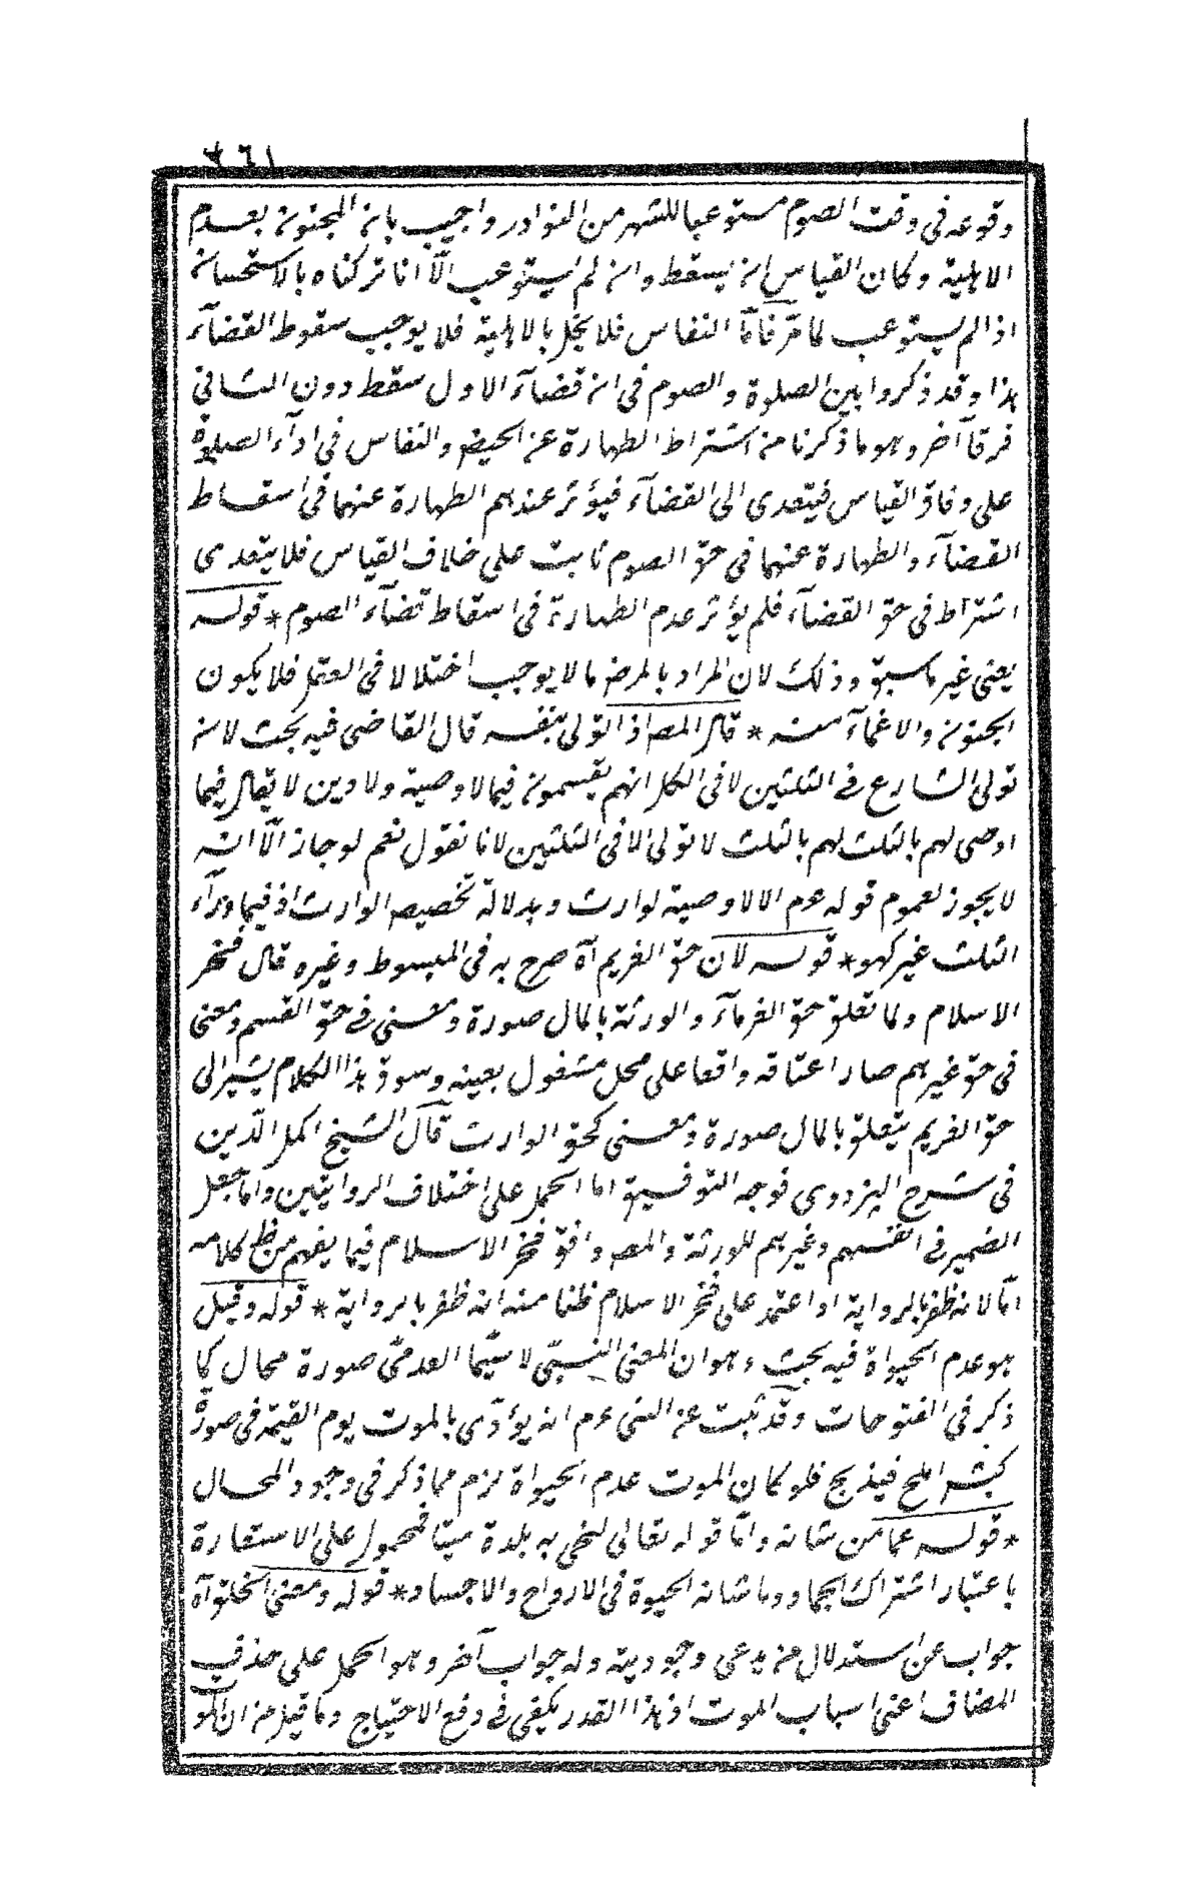 ٣٦١
وقوعه فى وقت الصوم مستوعبا للشهر من النوادر واجيب بان المجنون بعدم
الاهلية وكان القياس ان يسقط وان لم يستوعب الّا انا تركناه بالاستحسان
اذا لم يستوعب لما مرّ فامّا النفاس فلا يخل بالاهلية فلا يوجب سقوط القضآء
هذا وقد ذكروا بين الصلوة والصوم فى ان قضآء الاول سقط دون الثانى
فرقا آخر وهو ما ذكرنا من اشتراط الطهارة عن الحيض والنفاس فى ادآء الصلوة
على وفاق القياس فيتعدى الى القضآء فيؤثر عندهم الطهارة عنهما فى اسقاط
القضآء والطهارة عنهما فى حق الصوم ثابت على خلاف القياس فلا يتعدى
اشتراط فى حق القضآء فلم يؤثر عدم الطهارة فى اسقاط قضآء الصوم * قوله
يعنى غير ما سبق وذلك لان المراد بالمرض ما لا يوجب اختلالا فى العقل فلا يكون
الجنون والاغمآء منه * قال المص اذ التولى بنفسه قال القاضى فيه بحث لانه
تولى الشارع فى الثلثين لا فى الكل انهم يقسمون فيما لا وصية ولا دين لا يقال فيما
اوصى لهم بالثلث لهم بالثلث لا تولى الا فى الثلثين لانا نقول نعم لو جاز الّا انه
لا يجوز لعموم قوله عم الا لا وصية لوارث وبدلالة تخصيص الوارث اذ فيما ورآء
الثلث غير كهو * قوله لان حق الغريم آه صرح به فى المبسوط وغيره قال فخر
الاسلام ولما تعلق حق الغرمآء والورثة بالمال صورة ومعنى فى حق القسم ومعنى
فى حق غيرهم صار اعتاقه واقعا على محل مشغول بعينه وسوق هذا الكلام يشير الى
حق الغريم يتعلق بالمال صورة ومعنى كحق الوارث قال الشيخ اكمل الدّين
فى شرح البزدوى فوجه التوفيق اما الحمل على اختلاف الروايتين واما جعل
الضمير فى انفسهم وغيرهم للورثة والمص وافق فخر الاسلام فيما يفهم من ظ كلامه
امّا لانه ظفر بالرواية او اعتمد على فخر الاسلام ظنا منه انه ظفر بالرواية * قوله وقيل
هو عدم الحيواة فيه بحث وهو ان المعنى النسبىّ لا سيّما العدمىّ صورة محال كما
ذكر فى الفتوحات وقد ثبت عن النبى عم انه يؤدّى بالموت يوم القيمة فى صورة
كبش املح فيذبح فلو كان الموت عدم الحيواة لزم مما ذكر فى وجود المحال
* قوله عما من شانه وامّا قوله تعالى لنحيى به بلدة ميتا فمحمول على الاستعارة
باعتبار اشتراك الجماد وما شانه الحيوة فى الارواح والاجساد * قوله ومعنى الخلق آه
جواب عن استدلال من يدعى وجوديته وله جواب آخر وهو الحمل على حذف
المضاف اعنى اسباب الموت اذ هذا القدر يكفى فى دفع الاحتياج وما قيل من ان الموت